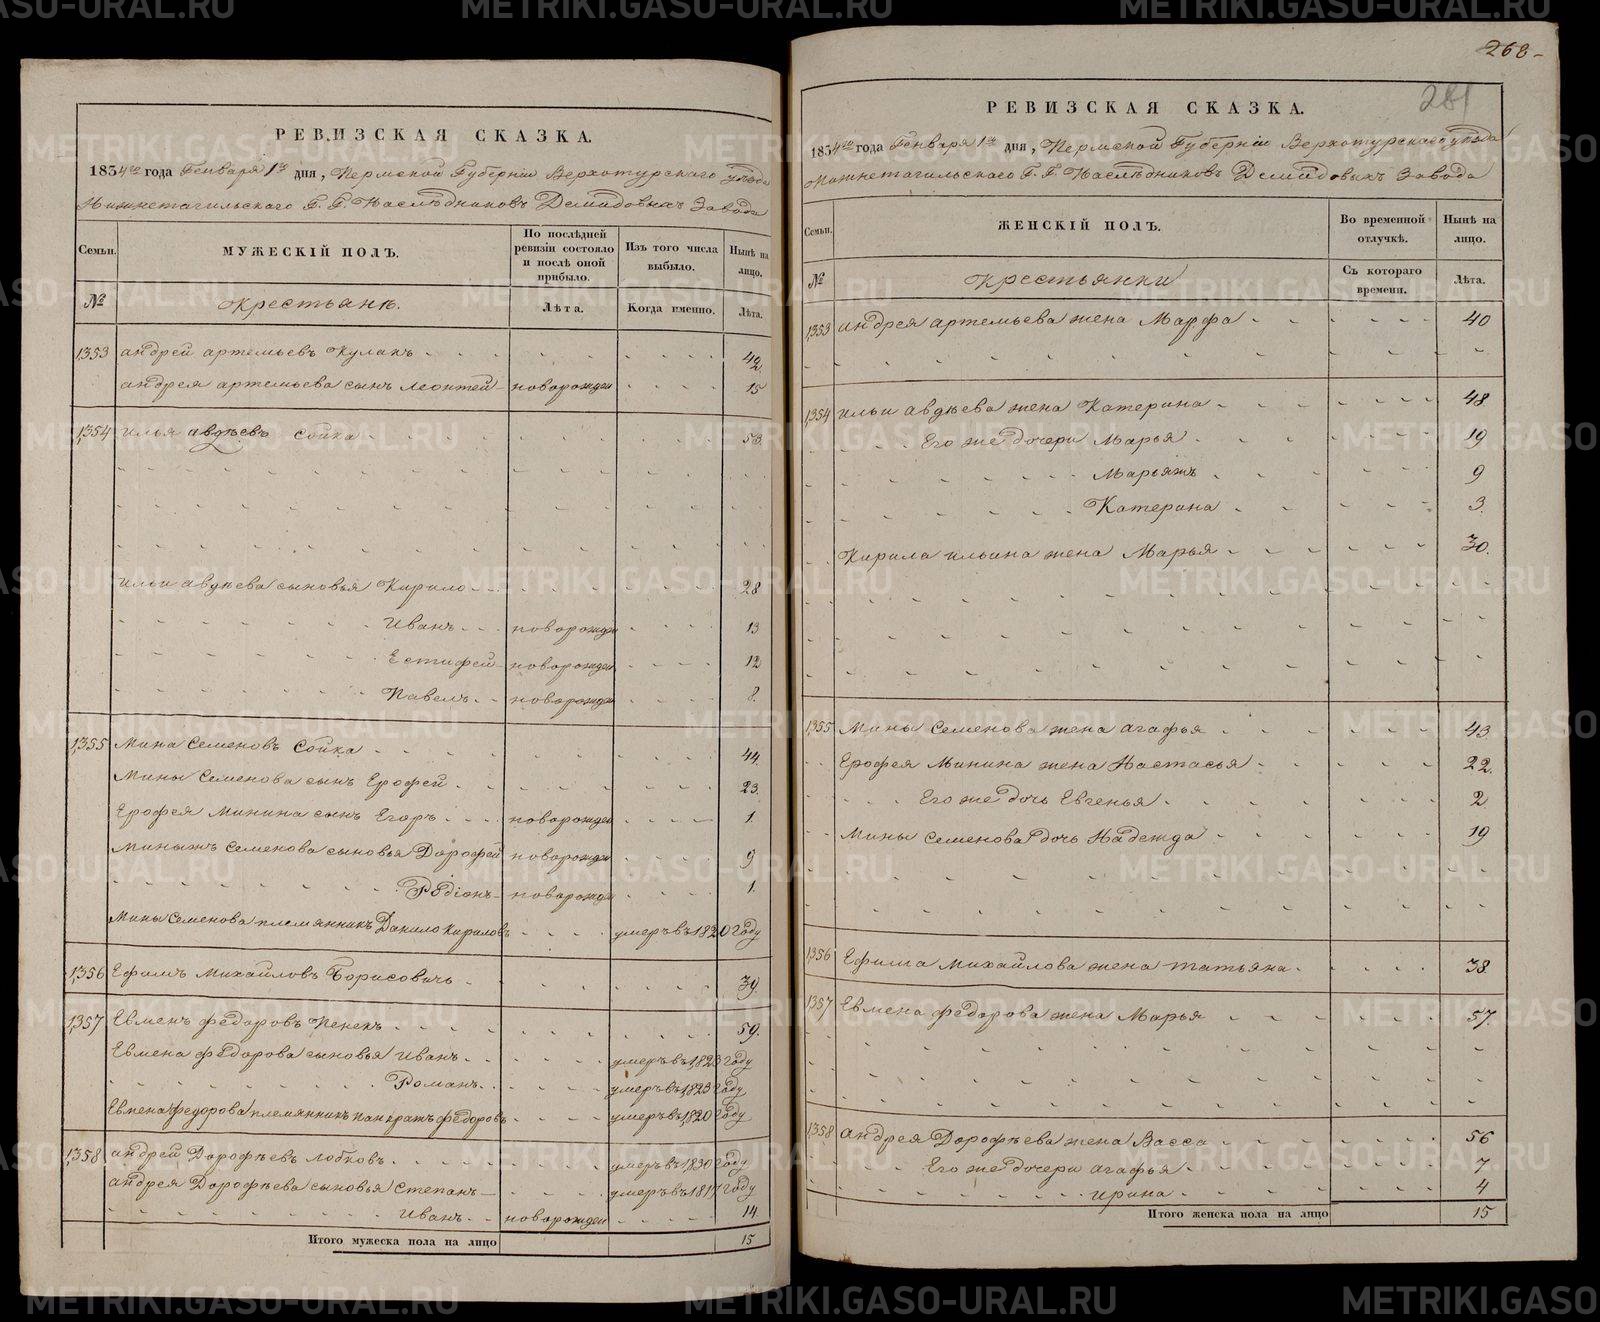 РЕВИЗСКАЯ СКАЗКА.
1834го года Генваря 1го дня, Пермской Губернiи Верхотурскаго уѣзда
Нижнетагильскаго Г. Г. Наслѣдниковъ Демидовыхъ Завода
Семьи. МУЖЕСКIЙ ПОЛЪ. По послѣдней ревизiи состояло и послѣ оной прибыло. Изъ того числа выбыло. Нынѣ на лицо.
№ Крестьянѣ. Лѣта. Когда именно. Лѣта.
1,353 андрей артемьевъ Кулакъ 42
андрея артемьева сынъ Леонтей новорожден 15
1,354 илья авдѣевъ Сойка 53
ильи авдѣева сыновья Кирило 28
Иванъ новорожден 13
Естифей новорожден 12
Павелъ новорожден 8
1,355 Мина Семеновъ Сойка 44
Мины Семенова сынъ Ерофей 23
Ерофея Минина сынъ Егоръ новорожден 1
Мины жъ Семенова сыновья Дорофей новорожден 9
Родiонъ новорожден 1
Мины Семенова племянникъ Данило Кириловъ умеръ въ 1820 году
1,356 Ефимъ Михайловъ Борисовичь 39
1,357 Евменъ Федоровъ Пенекъ 59
Евмена Федорова сыновья Иванъ умеръ въ 1,823 году
Романъ умеръ въ 1,823 году
Евмена Федорова племянникъ Панкратъ Федоровъ умеръ въ 1,820 году
1,358 андрей Дорофѣевъ Лобковъ умеръ въ 1830 году
андрея Дорофѣева сыновья Степанъ умеръ въ 1817 году
Иванъ новорожден 14
Итого мужеска пола на лицо 15
268
281
РЕВИЗСКАЯ СКАЗКА.
1834го года Генваря 1го дня, Пермской Губернiи Верхотурскаго уѣзда
Нижнетагильскаго Г. Г. Наслѣдниковъ Демидовыхъ Завода
Семьи. ЖЕНСКIЙ ПОЛЪ. Во временной отлучкѣ. Нынѣ на лицо.
№ Крестьянки Съ котораго времени. Лѣта.
1,353 андрея артемьева жена Марфа 40
1,354 ильи авдѣева жена Катерина 48
Его же дочери Марья 19
Марья жъ 9
Катерина 3
Кирила ильина жена Марья 30
1,355 Мины Семенова жена агафья 43
Ерофея Минина жена Настасья 22
Его же дочь Евгенья 2
Мины Семенова дочь Надежда 19
1,356 Ефима Михайлова жена татьяна 38
1,357 Евмена Федорова жена Марья 57
1,358 андрея Дорофѣева жена Васса 56
Его же дочери агафья 7
ирина 4
Итого женска пола на лицо 15
METRIKI.GASO-URAL.RU